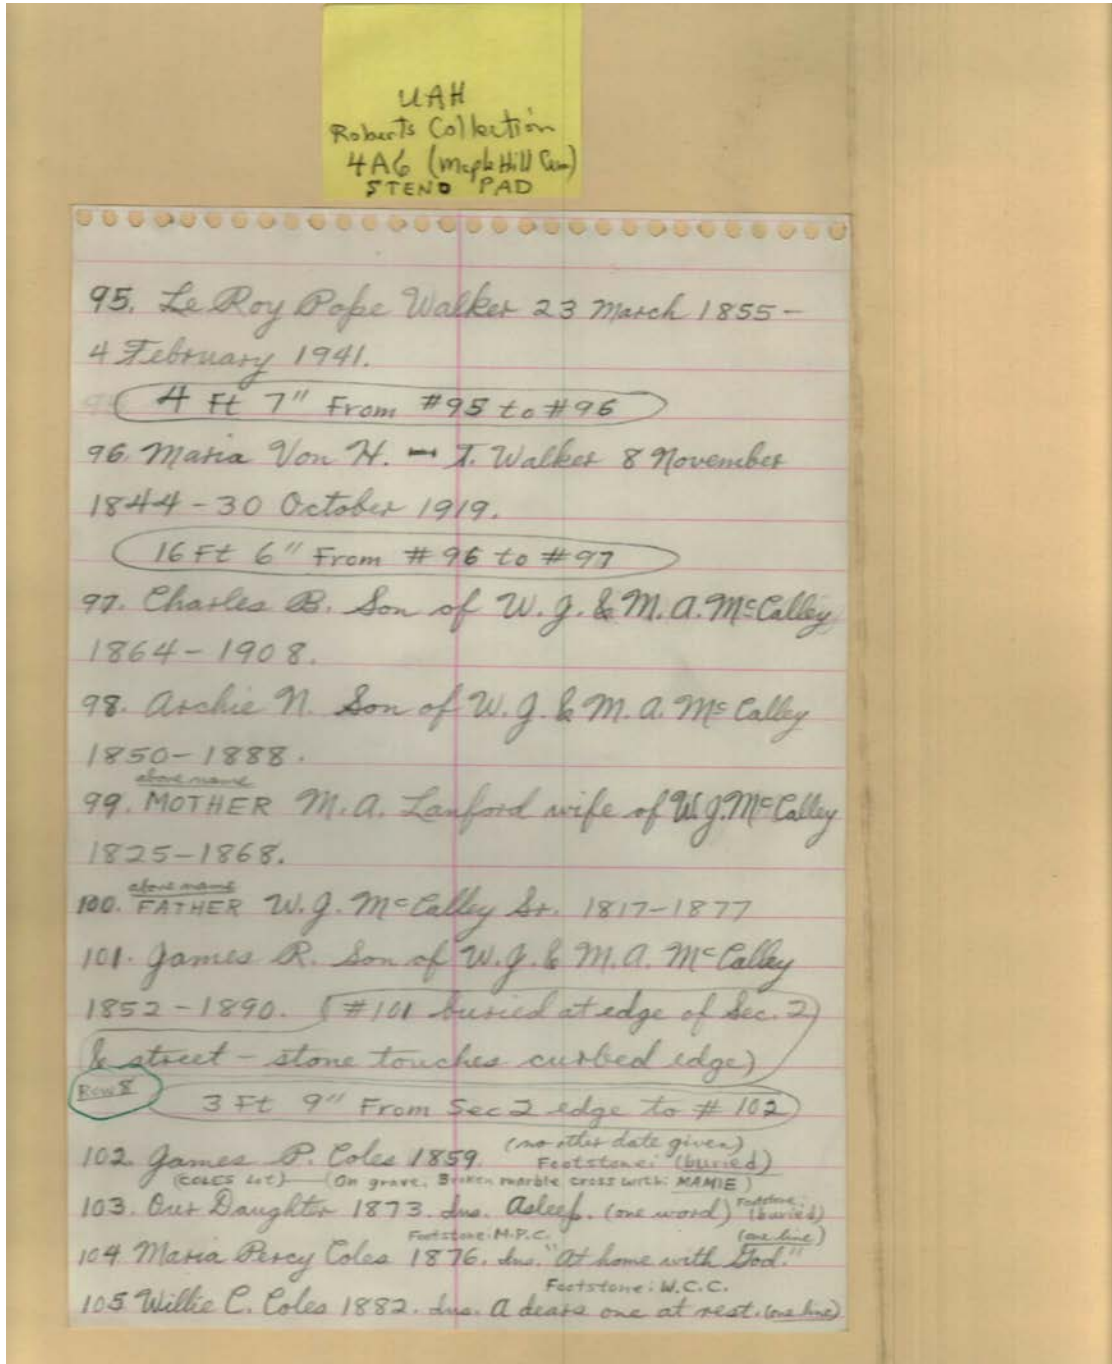 UAH
Roberts Collection
4A6 (Maple Hill Cem)
STENO PAD
95. Le Roy Pope Walker 23 March 1855 -
4 February 1941.
4 Ft 7" From #95 to #96
96. Maria Von H. - T. Walker 8 November
1844 - 30 October 1919.
16 Ft 6" From #96 to #97
97. Charles B. Son of W. J. & M. A. McCalley
1864 - 1908.
98. Archie N. Son of W. J. & M. A. McCalley
1850 - 1888.
above name
99. MOTHER M. A. Lanford wife of W. J. McCalley
1825 - 1868.
above name
100. FATHER W. J. McCalley Sr. 1817-1877
101. James R. Son of W. J. & M. A. McCalley
1852 - 1890. (#101 buried at edge of Sec. 2
& street - stone touches curbed edge)
Row 8
3 Ft 9" From Sec 2 edge to #102
(no other date given)
102. James P. Coles 1859. Footstone: (buried)
(COLES LOT) (On grave, Broken marble cross with: MAMIE)
103. Our Daughter 1873. Ins. Asleep. (one word) Footstone: (buried)
Footstone: M.P.C. (one line)
104 Maria Percy Coles 1876. Ins. "At home with God."
Footstone: W.C.C.
105 Willie C. Coles 1882. Ins. A dear one at rest. (one line)